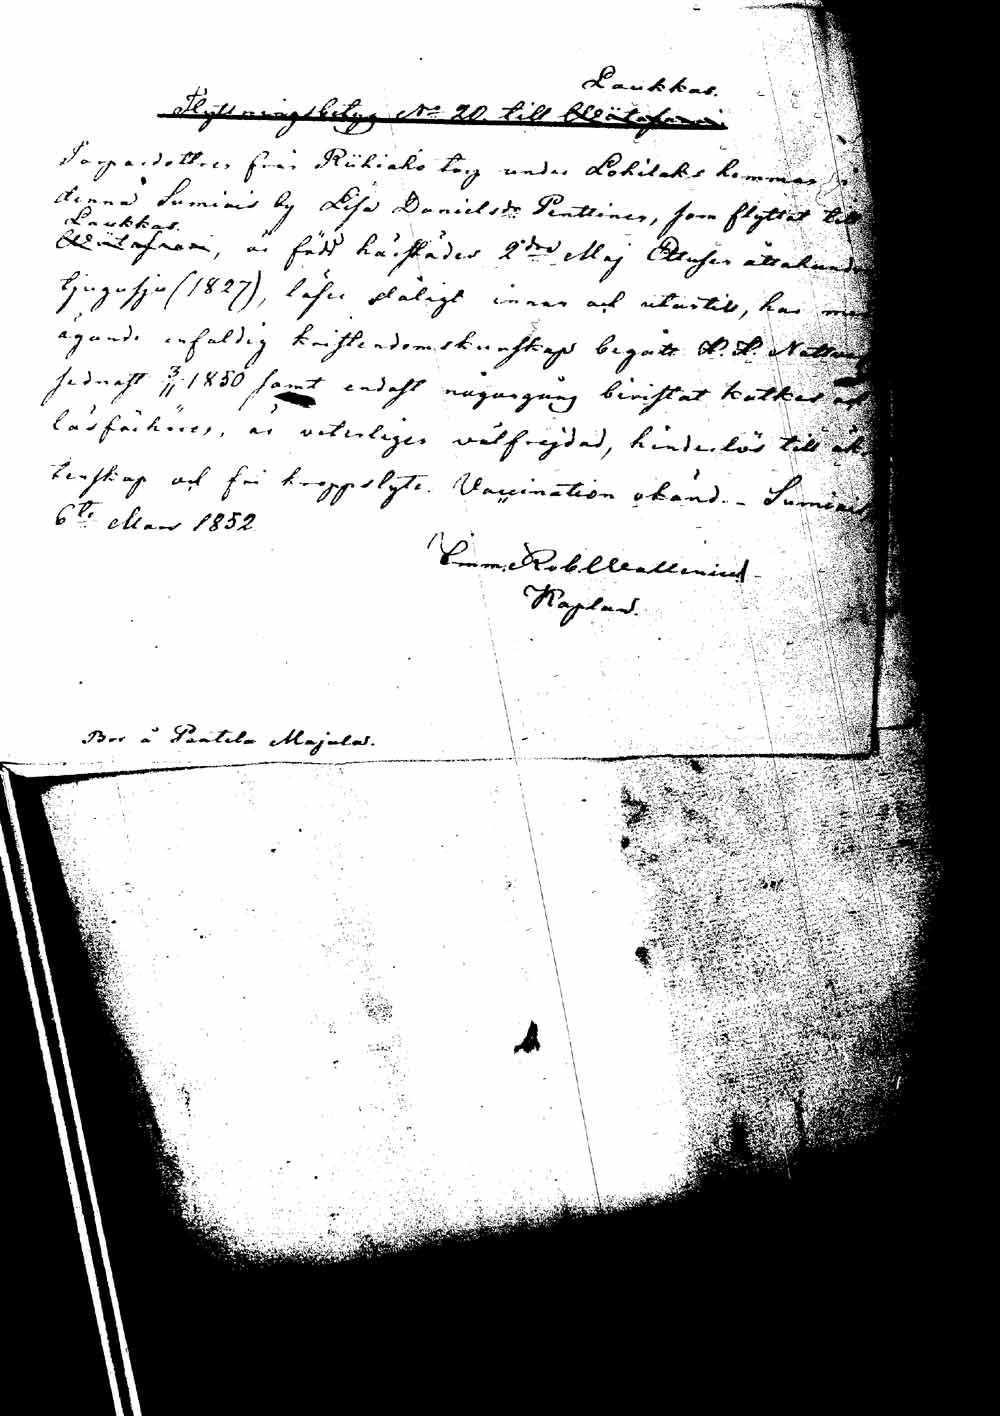 Laukkas.
Flyttningsbetyg No 20 till Wiitasaari
Torpardottren från Riihiaho torp under Lohilaks hemman, i
denna Sumiais by Lisa Danielsdr Penttinen, som flyttat till
Laukkas.
Wiitasaari, är född härstädes 2dra Maj Ettusen åttahundra
tjugusju (1827), läser dåligt innan och utantill, har med
ägande enfaldig kristendomskunskap begått H. H. Nattvard
sednast 3/11 1850 samt endast någongång bevistat katkes och
läsförhören, är veterligen välfrejdad, hinderlös till äk-
tenskap och fri kroppslyte. Vaccination okänd. - Sumiais
6te Mars 1852
Emm. Rob. Wallenius
Kaplan.
Bor å Penttilä Majalas.